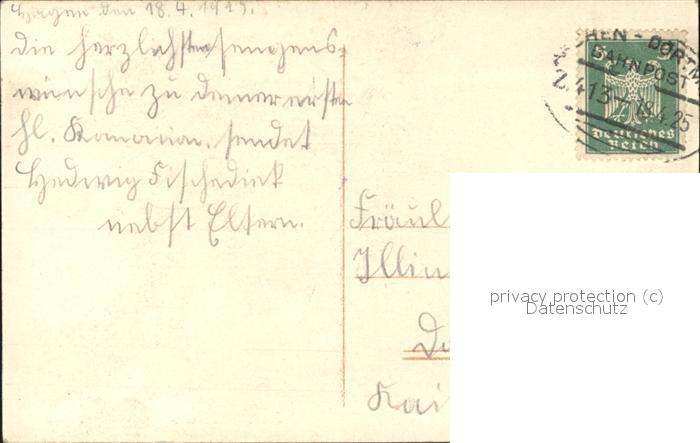 Hagen den 18.4.1925.
die herzlichsten Segens
wünsche zu deiner ersten
hl. Komonion, sendet
Hedwig Fischedick
nebst Eltern.
HEN - DORTM
BAHNPOST
18.4.25
5
Deutsches
Reich
Fräul
Illin
Do
Kai
privacy protection (c)
Datenschutz